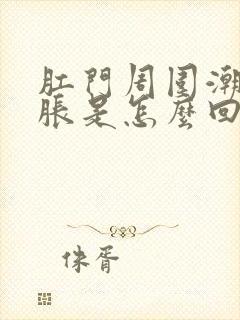 肛門周圍潮
脹是怎麼回
侏胥